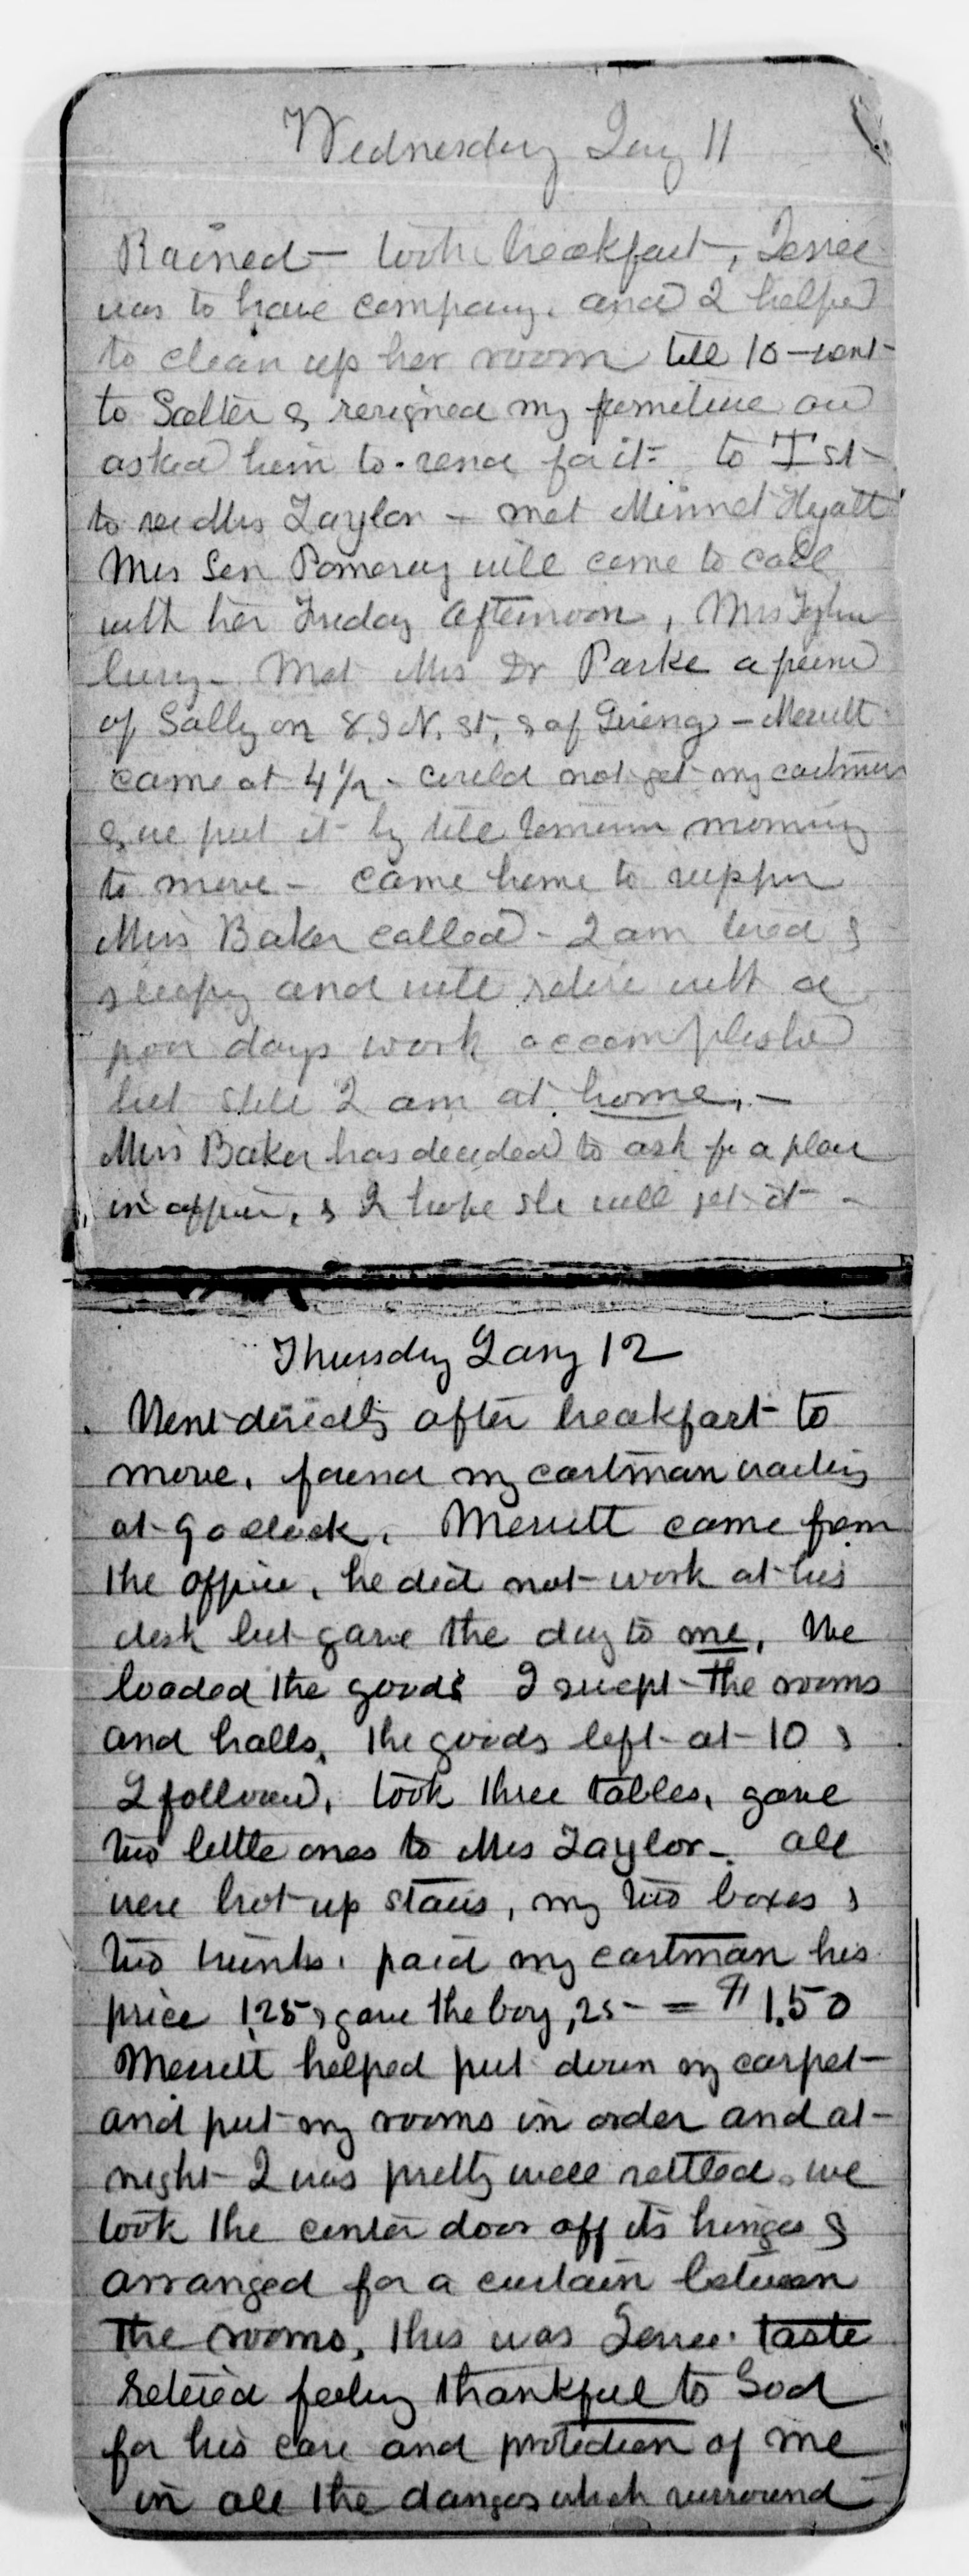 Wednesday Jany 11
Rained - took breakfast, Jessee
was to have company. and I helped
to clean up her room till 10 - went
to Salter & resigned my furniture and
asked him to send for it - to I st
to see Mrs Taylor - met Minnet Hyatt
Mrs Sen Pomeroy will come to call
with her Friday afternoon, Mrs Taylor
busy - Met Mrs Dr Parke a friend
of Sally on 8 & N. st, & of - Merritt
came at 4 1/2 - could not get my cartman
& we put it by till morning
to move - came home to supper
Miss Baker called - I am tired &
sleepy and will retire with a
poor days work accomplished
but still I am at home, -
Miss Baker has decided to ask for a place
in office, & I hope she will get it -
Thursday Jany 12
Went directly after breakfast to
move, found my cartman waiting
at 9 oclock. Merritt came from
the office, he did not work at his
desk but gave the day to me, We
loaded the goods I swept the rooms
and halls, the goods left at 10 &
I followed, took three tables, gave
two little ones to Mrs Taylor - all
were brot up stairs, my two boxes &
two trunks. paid my cartman his
price 1.25 & gave the boy ,25 - = $1.50
Merritt helped put down my carpet -
and put my rooms in order and at -
night I was pretty well settled. we
took the center door off its hinges &
arranged for a curtain between
the rooms, this was Jessee taste
Retired feeling thankful to God
for his care and protection of me
in all the dangers which surround